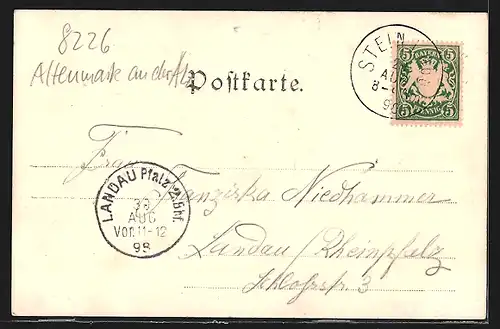 8226
Altenmarkt an der Alz
Postkarte.
STEIN
AUG
BAYERN
5 5
5 5
PFENNIG
Frau
Franziska Niedhammer
Landau / Rheinpfalz
Schloßstr. 3
LANDAU Pfalz 2. Bhf.
AUG
Vor. 11-12
98